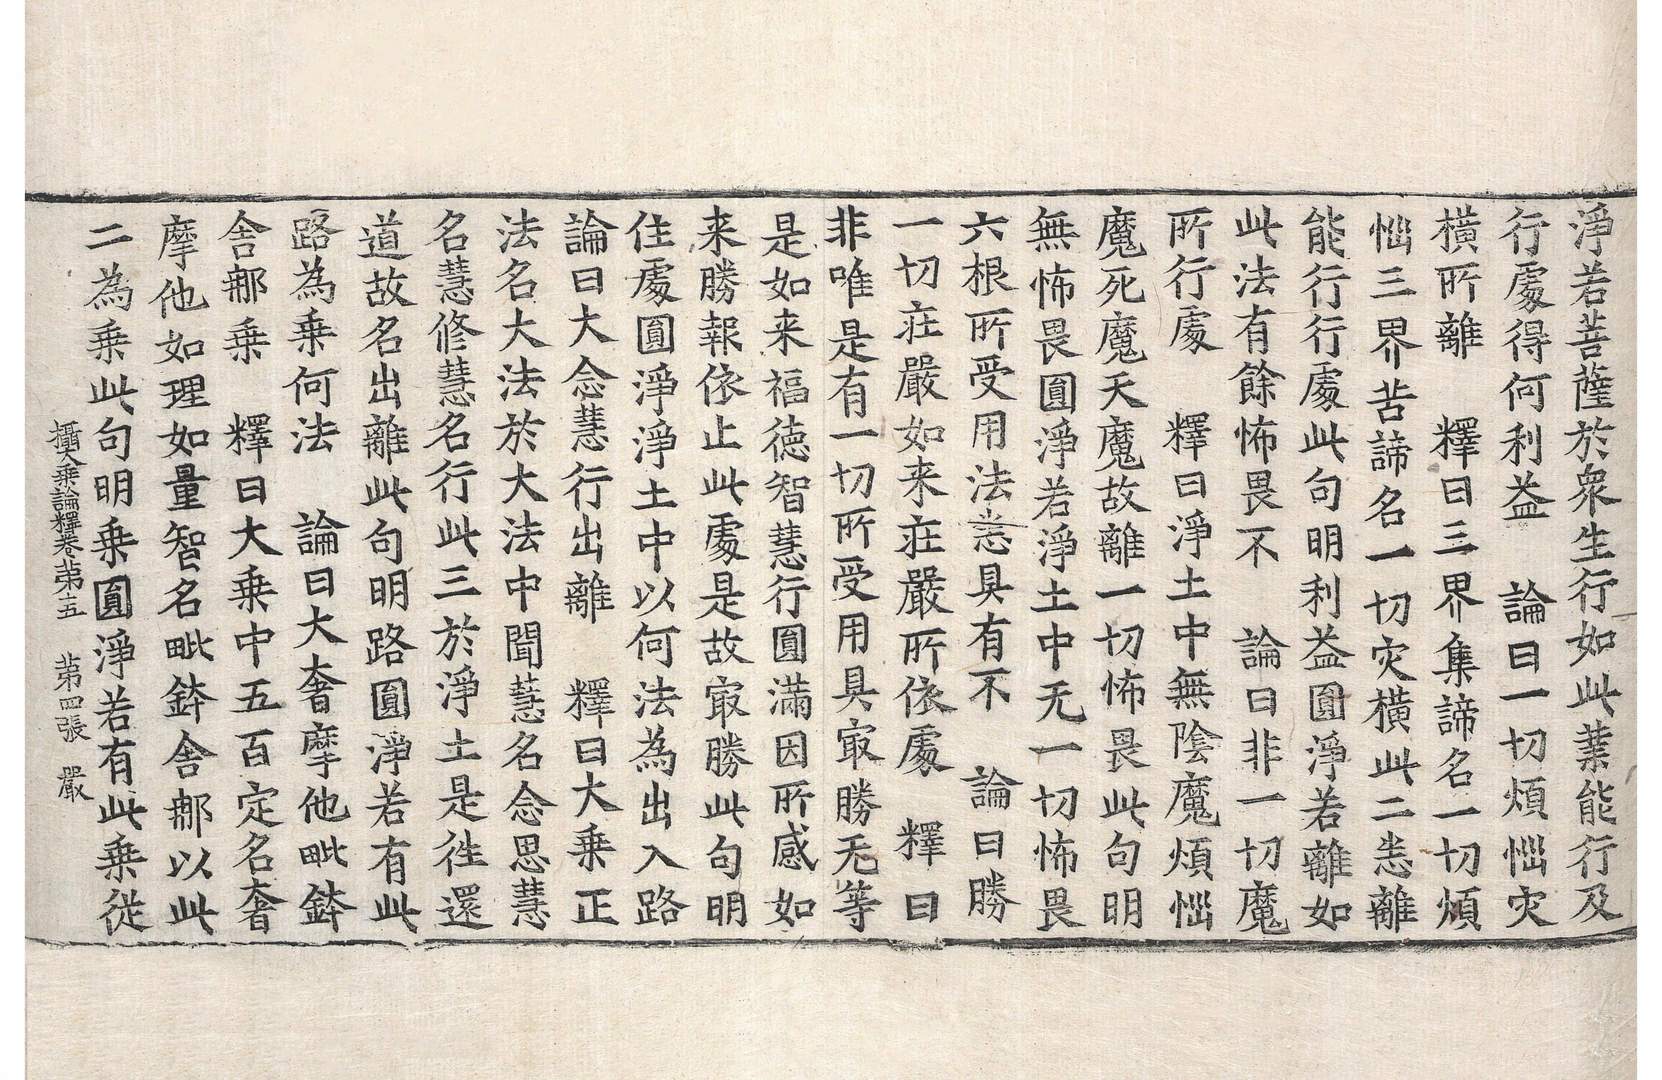 淨若菩薩於衆生行如此業能行及
行處得何利益　論曰一切煩惱灾
橫所離　釋曰三界集諦名一切煩
惱三界苦諦名一切灾橫此二悉離
能行行處此句明利益圓淨若離如
此法有餘怖畏不　論曰非一切魔
所行處　釋曰淨土中無陰魔煩惱
魔死魔天魔故離一切怖畏此句明
無怖畏圓淨若淨土中无一切怖畏
六根所受用法悉具有不　論曰勝
一切莊嚴如来莊嚴所依處　釋曰
非唯是有一切所受用具㝡勝无等
是如来福德智慧行圓滿因所感如
来勝報依止此處是故㝡勝此句明
住處圓淨淨土中以何法為出入路
論曰大念慧行出離　釋曰大乗正
法名大法於大法中聞慧名念思慧
名慧修慧名行此三於淨土是徃還
道故名出離此句明路圓淨若有此
路為乗何法　論曰大奢摩他毗鉢
舍那乗　釋曰大乗中五百定名奢
摩他如理如量智名毗鉢舍那以此
二為乗此句明乗圓淨若有此乗從
攝大乗論釋卷苐五　苐四張　嚴